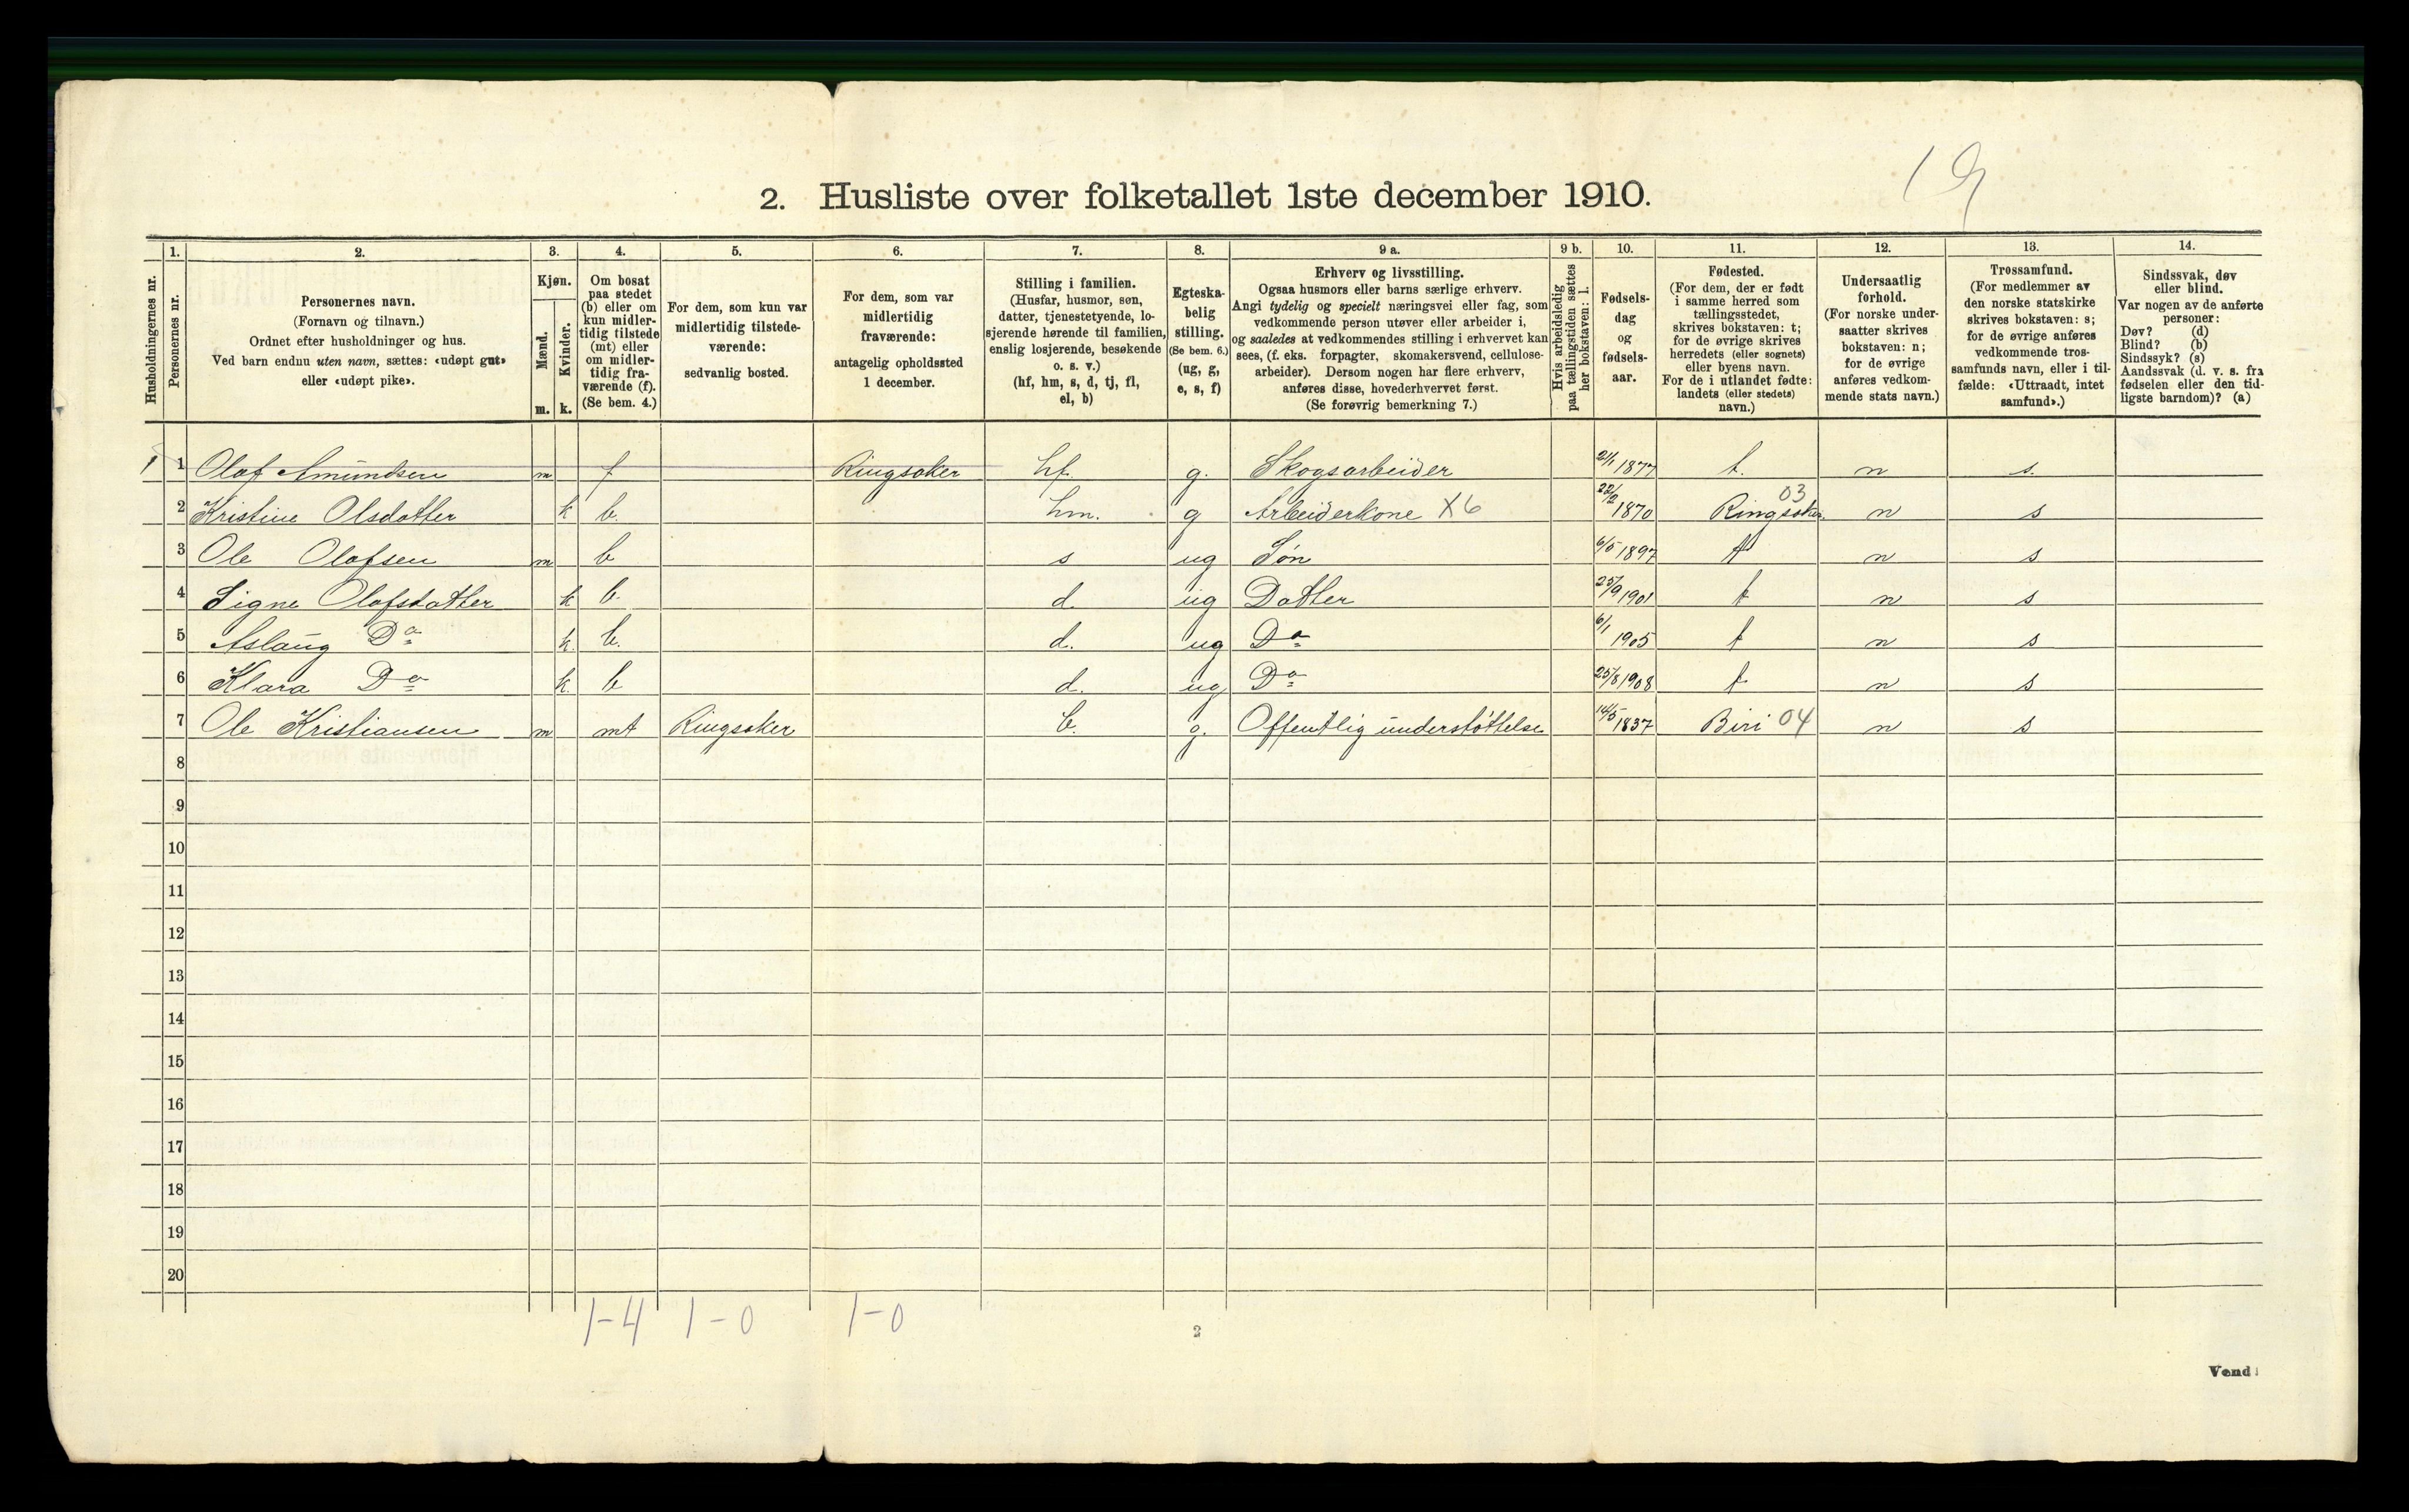 19
2. Husliste over folketallet 1ste december 1910.
1. 2. 3. 4. 5. 6. 7. 8. 9 a. 9 b. 10. 11. 12. 13. 14.
Husholdningernes nr.
Personernes nr.
Personernes navn.
(Fornavn og tilnavn.)
Ordnet efter husholdninger og hus.
Ved barn endnu uten navn, sættes: «udøpt gut»
eller «udøpt pike».
Kjøn.
Mænd.
Kvinder.
m. k.
Om bosat
paa stedet
(b) eller om
kun midler-
tidig tilstede
(mt) eller
om midler-
tidig fra-
værende (f).
(Se bem. 4.)
For dem, som kun var
midlertidig tilstede-
værende:
sedvanlig bosted.
For dem, som var
midlertidig
fraværende:
antagelig opholdssted
1 december.
Stilling i familien.
(Husfar, husmor, søn,
datter, tjenestetyende, lo-
sjerende hørende til familien,
enslig losjerende, besøkende
o. s. v.)
(hf, hm, s, d, tj, fl,
el, b)
Egteska-
belig
stilling.
(Se bem. 6.)
(ug, g,
e, s, f)
Erhverv og livsstilling.
Ogsaa husmors eller barns særlige erhverv.
Angi tydelig og specielt næringsvei eller fag, som
vedkommende person utøver eller arbeider i,
og saaledes at vedkommendes stilling i erhvervet kan
sees, (f. eks. forpagter, skomakersvend, cellulose-
arbeider). Dersom nogen har flere erhverv,
anføres disse, hovederhvervet først.
(Se forøvrig bemerkning 7.)
Hvis arbeidsledig
paa tællingstiden sættes
her bokstaven: l.
Fødsels-
dag
og
fødsels-
aar.
Fødested.
(For dem, der er født
i samme herred som
tællingsstedet,
skrives bokstaven: t;
for de øvrige skrives
herredets (eller sognets)
eller byens navn.
For de i utlandet fødte:
landets (eller stedets)
navn.)
Undersaatlig
forhold.
(For norske under-
saatter skrives
bokstaven: n;
for de øvrige
anføres vedkom-
mende stats navn.)
Trossamfund.
(For medlemmer av
den norske statskirke
skrives bokstaven: s;
for de øvrige anføres
vedkommende tros-
samfunds navn, eller i til-
fælde: «Uttraadt, intet
samfund».)
Sindssvak, døv
eller blind.
Var nogen av de anførte
personer:
Døv? (d)
Blind? (b)
Sindssyk? (s)
Aandssvak (d. v. s. fra
fødselen eller den tid-
ligste barndom)? (a)
1 1 Olaf Amundsen m f Ringsaker hf. g. Skogsarbeider 2/1 1877 t. n s.
2 Kristine Olsdatter k b. hm. g Arbeiderkone X6 22/2 1870 Ringsaker 03 n s
3 Ole Olafsen m b s ug Søn 6/5 1897 t n s
4 Signe Olafsdatter k b. d. ug Datter 25/9 1901 t n s
5 Aslaug Do k. b. d. ug Do 6/1 1905 t n s
6 Klara Do k. b d. ug Do 25/8 1908 t n s
7 Ole Kristiansen m mt Ringsaker b. g. Offentlig understøttelse 14/5 1837 Biri 04 n s
8
9
10
11
12
13
14
15
16
17
18
19
20
1-4 1-0 1-0
2
Vend!